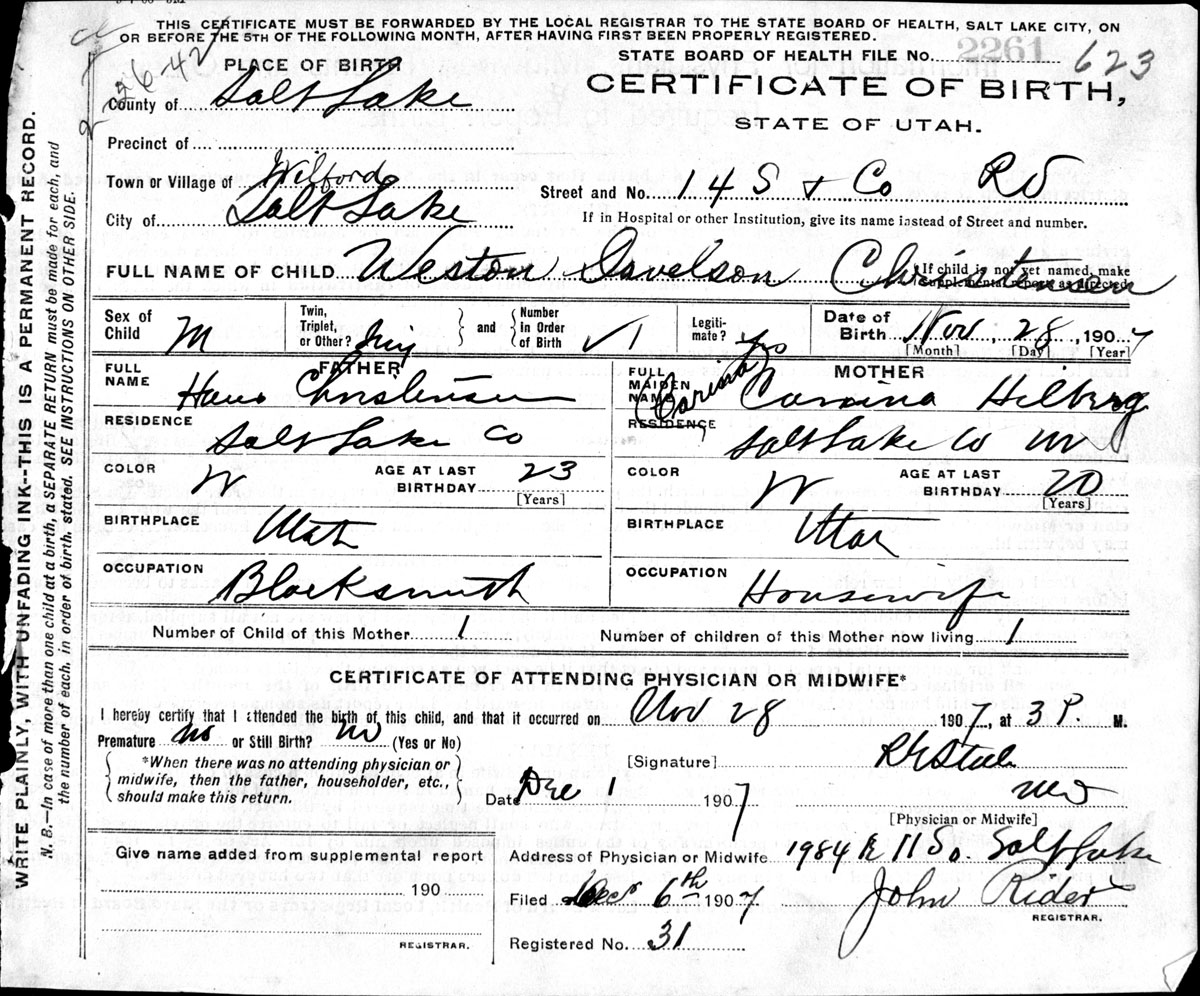 THIS CERTIFICATE MUST BE FORWARDED BY THE LOCAL REGISTRAR TO THE STATE BOARD OF HEALTH, SALT LAKE CITY, ON
OR BEFORE THE 5TH OF THE FOLLOWING MONTH, AFTER HAVING FIRST BEEN PROPERLY REGISTERED.
2-6-42
PLACE OF BIRTH
STATE BOARD OF HEALTH FILE No. 2261 623
CERTIFICATE OF BIRTH,
STATE OF UTAH.
County of Salt Lake
Precinct of
Town or Village of Wilford
Street and No. 14 S & Co Rd
City of Salt Lake
If in Hospital or other Institution, give its name instead of Street and number.
FULL NAME OF CHILD Weston Christensen
If child is not yet named, make supplemental report as directed
Sex of Child M
Twin, Triplet, or Other?
and Number in Order of Birth 1
Legitimate? Yes
Date of Birth Nov, 28, 1907
[Month] [Day] [Year]
FATHER
FULL NAME Hans Christensen
RESIDENCE Salt Lake Co
COLOR W
AGE AT LAST BIRTHDAY 23
[Years]
BIRTHPLACE Utah
OCCUPATION Blacksmith
MOTHER
FULL MAIDEN NAME Carsina Hilberg
RESIDENCE Salt Lake Co
COLOR W
AGE AT LAST BIRTHDAY 20
[Years]
BIRTHPLACE Utah
OCCUPATION Housewife
Number of Child of this Mother 1
Number of children of this Mother now living 1
CERTIFICATE OF ATTENDING PHYSICIAN OR MIDWIFE*
I hereby certify that I attended the birth of this child, and that it occurred on Nov 28 1907, at 3 P. M.
Premature no or Still Birth? no (Yes or No)
*When there was no attending physician or
midwife, then the father, householder, etc.,
should make this return.
[Signature]
MD
Date Dec 1 1907
[Physician or Midwife]
Give name added from supplemental report
190
REGISTRAR.
Address of Physician or Midwife 1984 E 11 So. Salt Lake
Filed Dec 6th 1907 John Rider
REGISTRAR.
Registered No. 31
WRITE PLAINLY, WITH UNFADING INK--THIS IS A PERMANENT RECORD.
N. B.—In case of more than one child at a birth, a SEPARATE RETURN must be made for each, and
the number of each, in order of birth, stated. SEE INSTRUCTIONS ON OTHER SIDE.